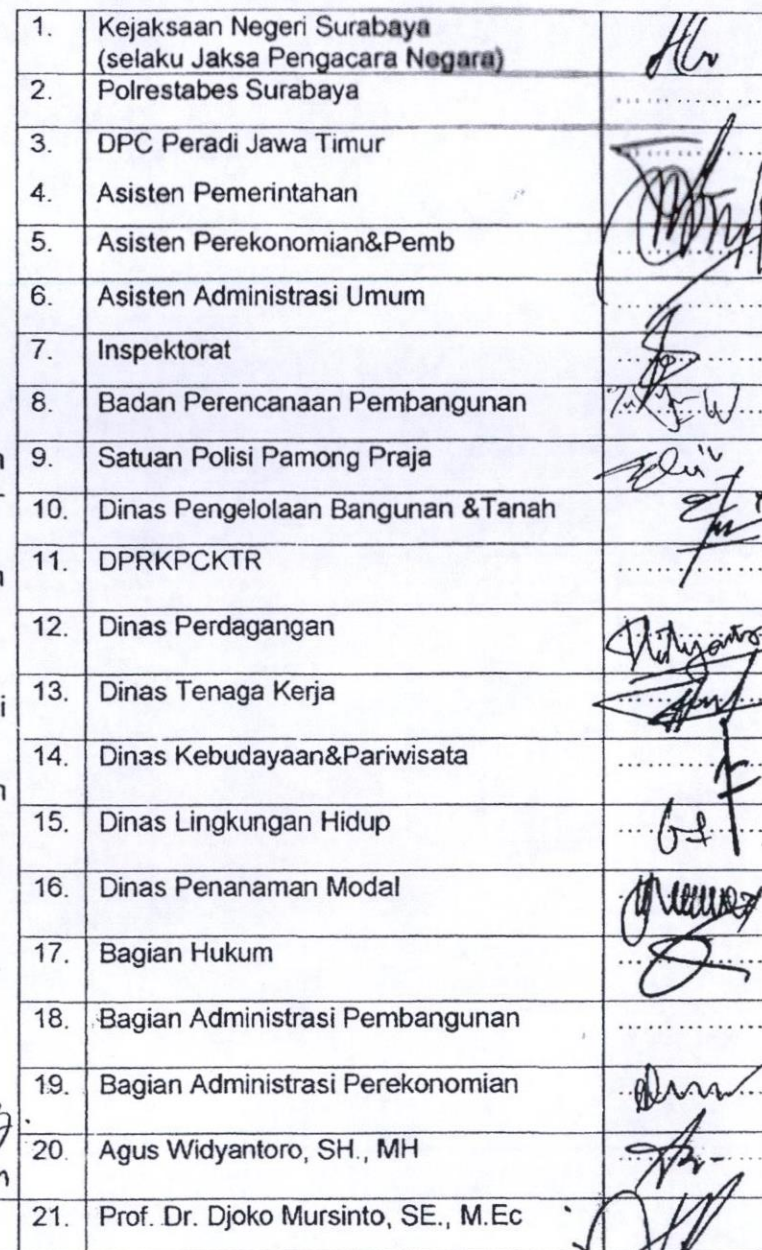 1. Kejaksaan Negeri Surabaya
(selaku Jaksa Pengacara Negara)
2. Polrestabes Surabaya
3. DPC Peradi Jawa Timur
4. Asisten Pemerintahan
5. Asisten Perekonomian&Pemb
6. Asisten Administrasi Umum
7. Inspektorat
8. Badan Perencanaan Pembangunan
9. Satuan Polisi Pamong Praja
10. Dinas Pengelolaan Bangunan &Tanah
11. DPRKPCKTR
12. Dinas Perdagangan
13. Dinas Tenaga Kerja
14. Dinas Kebudayaan&Pariwisata
15. Dinas Lingkungan Hidup
16. Dinas Penanaman Modal
17. Bagian Hukum
18. Bagian Administrasi Pembangunan
19. Bagian Administrasi Perekonomian
20. Agus Widyantoro, SH., MH
21. Prof. Dr. Djoko Mursinto, SE., M.Ec